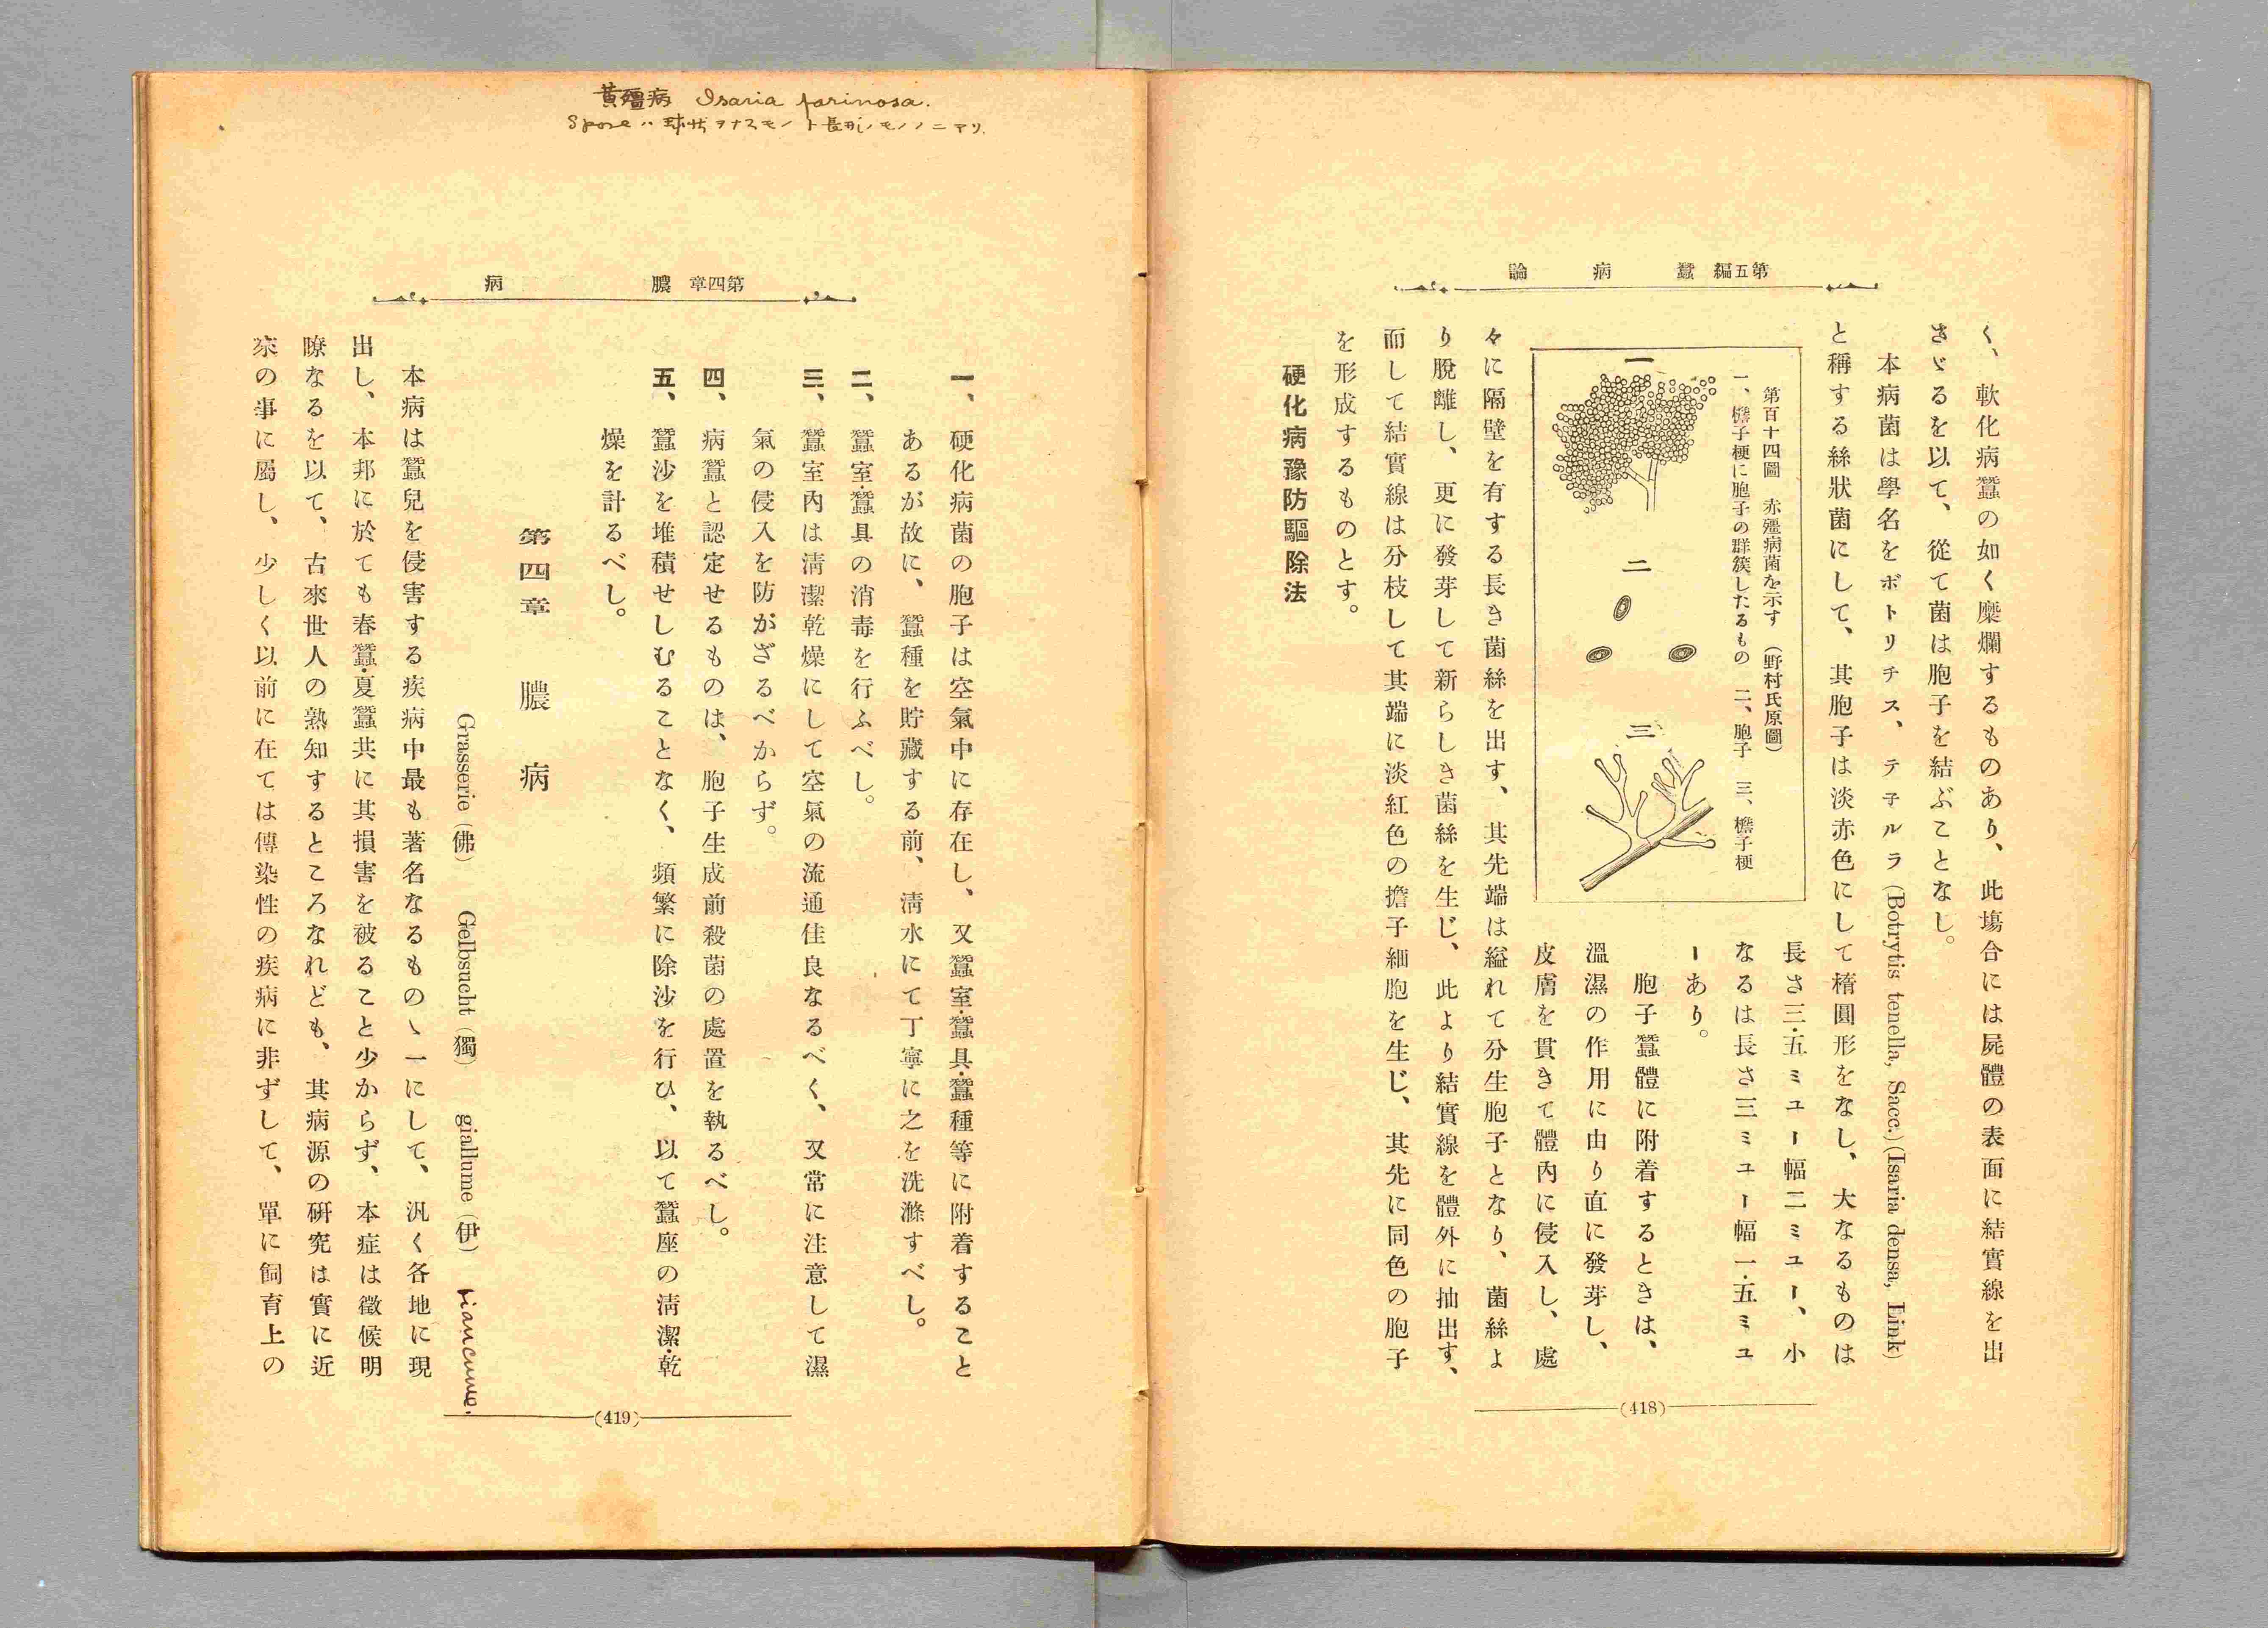 第五編 蠶病論
く、軟化病蠶の如く糜爛するものあり、此塲合には屍體の表面に結實線を出
さゞるを以て、從て菌は胞子を結ぶことなし。
本病菌は學名をボトリチス、テ子ルラ (Botrytis tenella, Sacc.) (Isaria densa, Link)
と稱する絲狀菌にして、其胞子は淡赤色にして楕圓形をなし、大なるものは
長さ三・五ミユー幅二ミユー、小
なるは長さ三ミユー幅一・五ミユ
ーあり。
第百十四圖 赤殭病菌を示す (野村氏原圖)
一、檐子梗に胞子の群簇したるもの 二、胞子 三、檐子梗
一
二
三
胞子蠶體に附着するときは、
溫濕の作用に由り直に發芽し、
皮膚を貫きて體內に侵入し、處
々に隔壁を有する長き菌絲を出す、其先端は縊れて分生胞子となり、菌絲よ
り脫離し、更に發芽して新らしき菌絲を生じ、此より結實線を體外に抽出す、
而して結實線は分枝して其端に淡紅色の擔子細胞を生じ、其先に同色の胞子
を形成するものとす。
硬化病豫防驅除法
(418)
黃殭病 Isaria farinosa.
Spore ハ球狀ヲナスモノト長形ノモノノニアリ.
第四章 膿病
一、硬化病菌の胞子は空氣中に存在し、又蠶室・蠶具・蠶種等に附着すること
あるが故に、蠶種を貯藏する前、淸水にて丁寧に之を洗滌すべし。
二、蠶室・蠶具の消毒を行ふべし。
三、蠶室內は淸潔乾燥にして空氣の流通佳良なるべく、又常に注意して濕
氣の侵入を防がざるべからず。
四、病蠶と認定せるものは、胞子生成前殺菌の處置を執るべし。
五、蠶沙を堆積せしむることなく、頻繁に除沙を行ひ、以て蠶座の淸潔・乾
燥を計るべし。
第四章 膿病
Grasserie (佛) Gelbsucht (獨) giallume (伊)
本病は蠶兒を侵害する疾病中最も著名なるものゝ一にして、汎く各地に現
出し、本邦に於ても春蠶・夏蠶共に其損害を被ること少からず、本症は徵候明
瞭なるを以て、古來世人の熟知するところなれども、其病源の硏究は實に近
來の事に屬し、少しく以前に在ては傳染性の疾病に非ずして、單に飼育上の
(419)